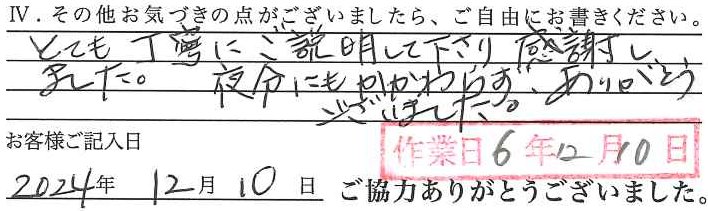 Ⅳ．その他お気づきの点がございましたら、ご自由にお書きください。
とても丁寧にご説明して下さり感謝し
ました。 夜分にもかかわらず、ありがとう
ございました。
お客様ご記入日
作業日 6年12月10日
2024年 12月 10日 ご協力ありがとうございました。